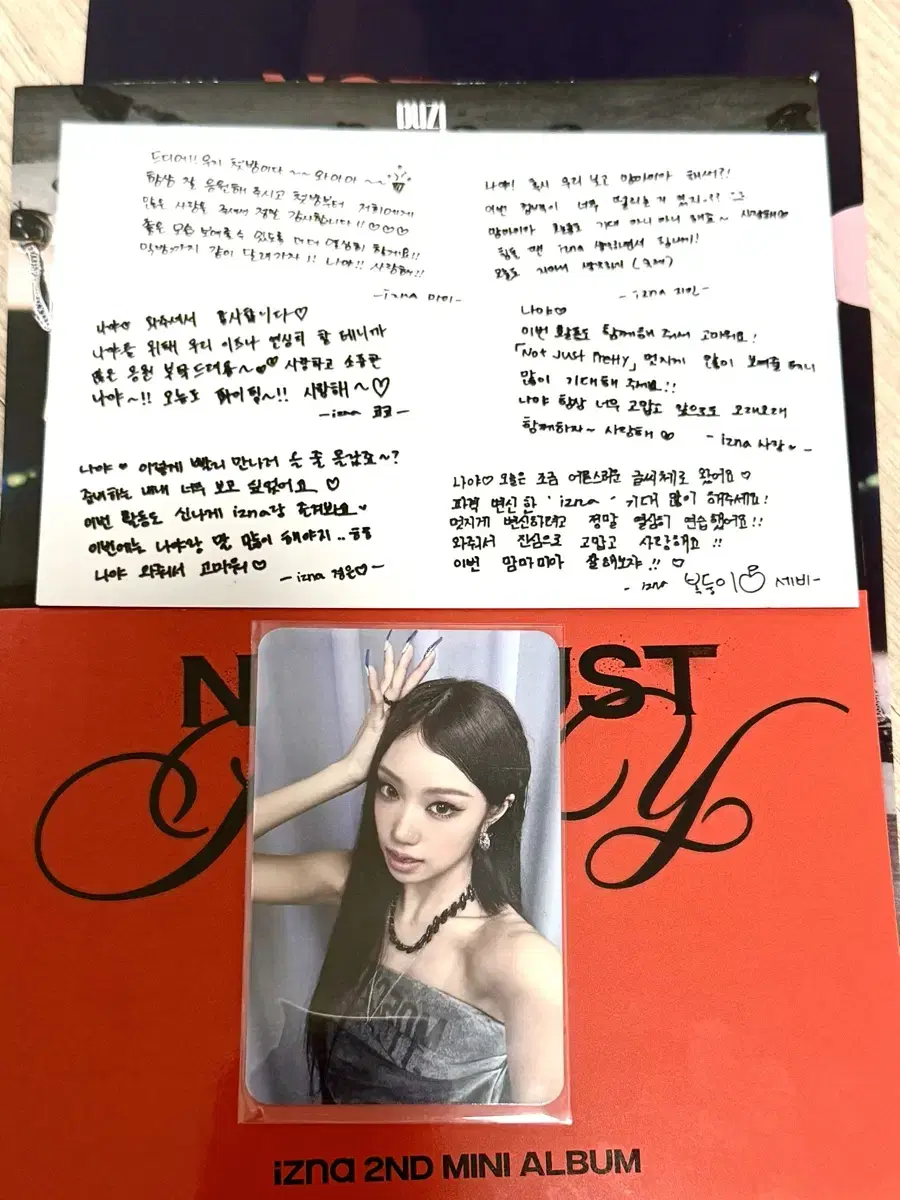 드디어!! 우리 첫방이다 ~~ 와아아 ~~
항상 잘 응원해 주시고 첫방부터 저희에게
많은 사랑을 주셔서 정말 감사합니다!! ♡♡♡
좋은 모습 보여줄 수 있도록 더 더 열심히 할게요!!
막방까지 같이 달려가자!! 나야!! 사랑해!!
-izna 마이-
나야♡ 와주셔서 감사합니다♡
나야를 위해 우리 이즈나 열심히 할 테니까
많은 응원 부탁드려용~ 사랑하고 소중한
나야~!! 오늘도 파이팅~!! 사랑해~♡
-izna 코코-
나야♥ 이렇게 빨리 만나게 될 줄 몰랐죠~?
준비하는 내내 너무 보고 싶었어요 ♡
이번 활동도 신나게 izna랑 즐겨봐요
이번에는 나야랑 말 많이 해야지..ㅎㅎ
나야 와줘서 고마워♡
-izna 정은♡-
나야! 혹시 우리 보고 맘마미아 해써?!
이번 컴백이 너무 떨리는 거 있지..??
맘마미아 활동도 기대 마니 마니 해요~ 사랑해♡
힘들 땐 izna 생각하면서 힘내!
오늘도 지이내 생각하기
-izna 지민-
나야♡
이번 활동도 함께해 줘서 고마워요!
「Not Just Pretty」 멋지게 많이 보여줄 테니
많이 기대해 주세요!!
나야 항상 너무 고맙고 앞으로도 오래오래
함께하자~ 사랑해 ♡
-izna 사랑-
나야♡ 오늘은 조금 어른스러운 글씨체로 왔어요♡
파격 변신한 'izna' 기대 많이 해주세요!
멋지게 변신하려고 정말 열심히 연습했어요!!
와줘서 진심으로 고맙고 사랑해요!!
이번 맘마미아 잘해보자!! ♡
-izna 복둥이 세비-
N UST
y
izna 2ND MINI ALBUM